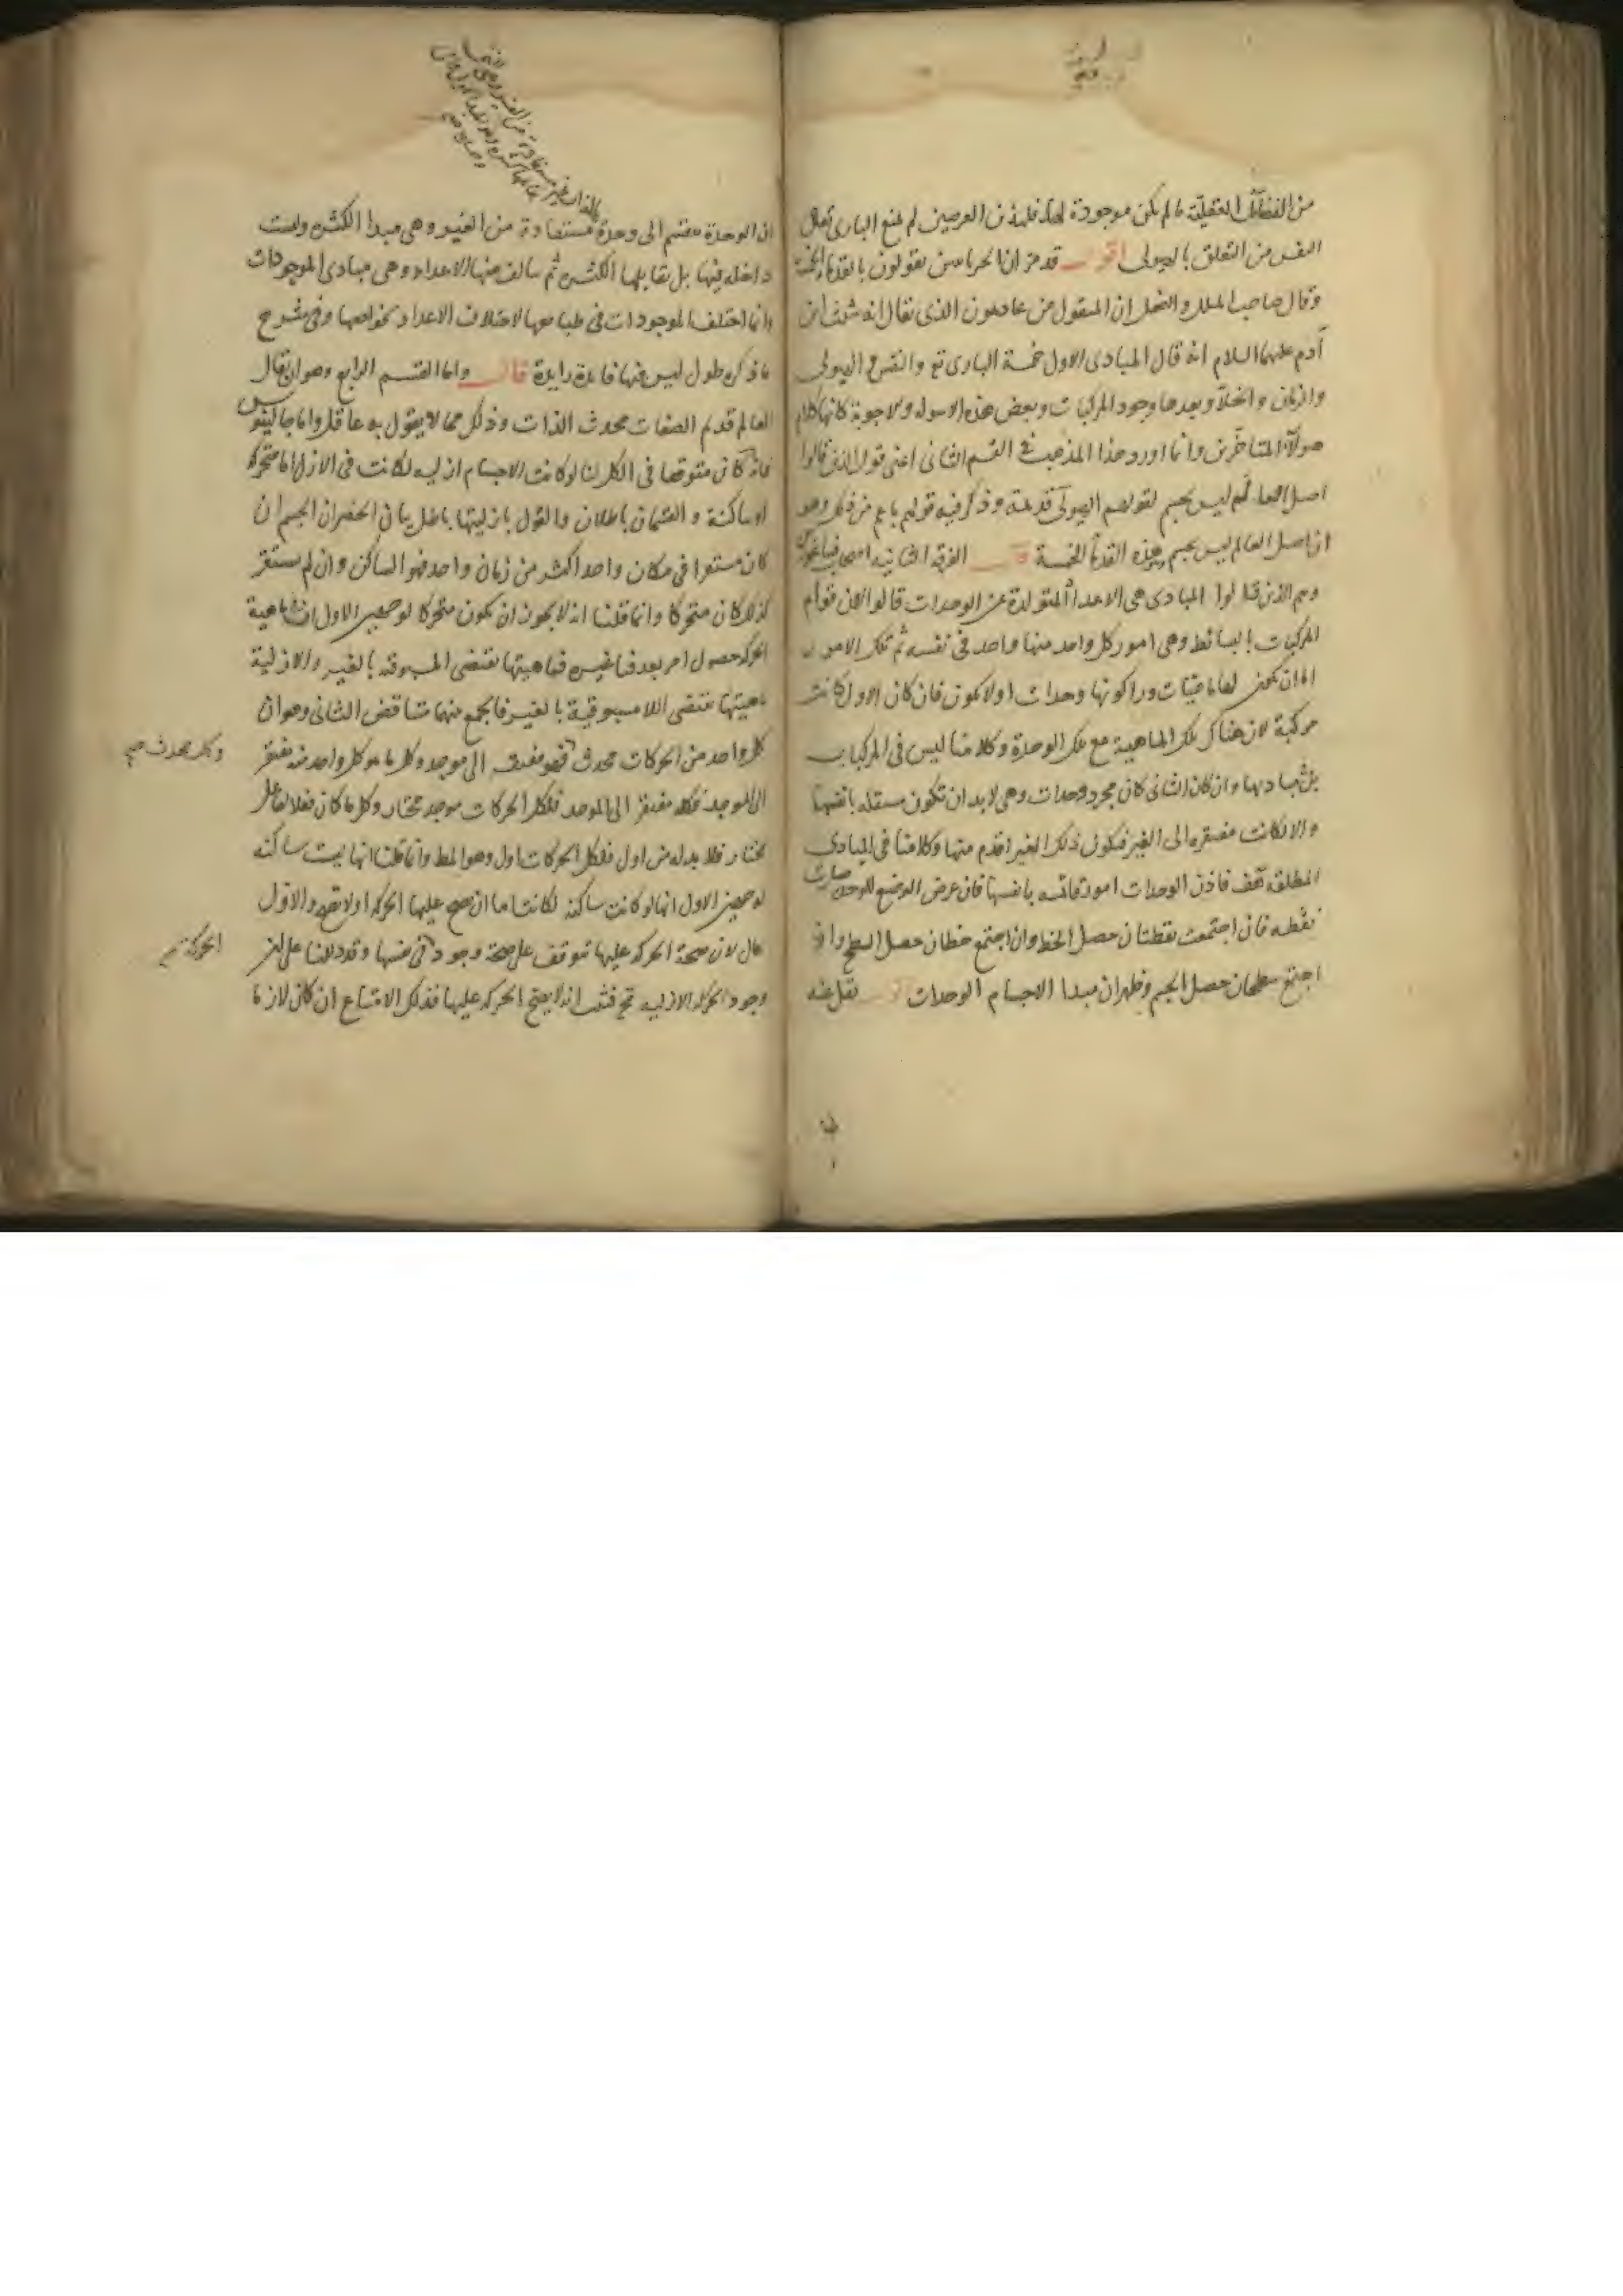 من الفضائل العقلية ما لم يكن موجودة لها فلهذين الغرضين لم يمنع البارى تعالى
النفس من التعلق بالهيولى اقول قد مر ان الحرنانيين يقولون بالقدماء الخمسة
وقال صاحب الملل والنحل ان المنقول عن عاذيمون الذى يقال انه شيث ابن
آدم عليهما السلام انه قال المبادى الاول خمسة البارى تع والنفس والهيولى
والزمان والخلاء وبعدها وجود المركبات وبعض هذه الاسولة والاجوبة كانها كلام
هولاء المتاخرين وانما اورد هذا المذهب فى القسم الثانى اعنى قول الذين قالوا
اصل العالم ليس بجسم لقولهم الهيولى قديمة وذكر فيه قولهم باعم من ذلك وهو
ان اصل العالم ليس بجسم وهذه القدماء الخمسة قال الفرقة الثانية اصحاب فيثاغورس
وهم الذين قالوا المبادى هى الاعداد المتولدة عن الوحدات قالوا لان قوام
المركبات بالبسائط وهى امور كل واحد منها واحد فى نفسه ثم تلك الامور
اما ان يكون لها ماهيات وراء كونها وحدات او لا يكون فان كان الاول كانت
مركبة لان هناك تلك الماهية مع تلك الوحدة وكلامنا ليس فى المركبات
بل فى مباديها وان كان الثانى كان مجرد وحدات وهى لا بد ان تكون مستقلة بانفسها
والا لكانت مفتقرة الى الغير فيكون ذلك الغير اقدم منها وكلامنا فى المبادى
المطلقة هف فاذن الوحدات امور قائمة بانفسها فان عرض الوضع للوحدة صارت
نقطة فان اجتمعت نقطتان حصل الخط وان اجتمع خطان حصل السطح وان
اجتمع سطحان حصل الجسم فظهر ان مبدا الاجسام الوحدات اقول نقل عنه
ان الوحدة تنقسم الى وحدة مستفادة من الغير وهى مبدا الكثرة وليست
داخلة فيها بل يقابلها الكثرة ثم يتالف منها الاعداد وهى مبادى الموجودات
وانما اختلفت الموجودات فى طبايعها لاختلاف الاعداد بخواصها وفى شرح
ما ذكره طول ليس فيها فايدة زايدة قال واما القسم الرابع وهو ان يقال
العالم قديم الصفات محدث الذات وذلك مما لا يقول به عاقل واما جالينوس
فانه كان متوقفا فى الكل لنا لو كانت الاجسام ازلية لكانت فى الازل اما متحركة
او ساكنة والقسمان باطلان فالقول بازليتها باطل بيان الحصر ان الجسم ان
كان مستقرا فى مكان واحد اكثر من زمان واحد فهو الساكن وان لم يستقر
كذلك كان متحركا وانما قلنا انه لا يجوز ان يكون متحركا لوجهين الاول ان ماهية
الحركة حصول امر بعد فنا غيره فماهيتها تقتضى المسبوقية بالغير والازلية
ماهيتها تقتضى اللامسبوقية بالغير فالجمع بينهما متناقض الثانى وهو ان
كل واحد من الحركات محدث فهو مفتقر الى موجد وكل ما هو كل واحد منه مفتقر
الى الموجد فكله مفتقر الى الموجد فلكل الحركات موجد مختار وكل ما كان فعلا لفاعل
مختار فلا بد له من اول فلكل الحركات اول وهو المط وانما قلنا انها ليست ساكنة
لوجهين الاول انها لو كانت ساكنة لكانت اما ان يصح عليها الحركة او لا يصح والاول
محال لان صحة الحركة عليها يتوقف على صحة وجود فى نفسها وقد دللنا على ان
وجود الحركة الازلية مح فثبت انه لا يصح الحركة عليها فذلك الامتناع ان كان لازما
وكل محدث صح
الحركة صح